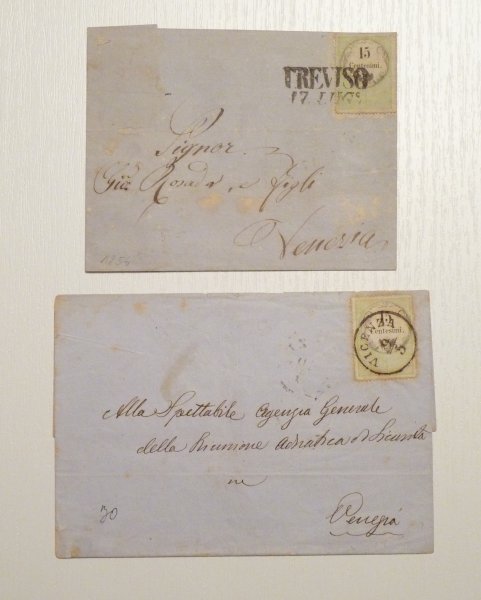 15
Centesimi.
TREVISO
17. LUG.
Signor
Gio. Rosada e Figli
Venezia
1856
VICENZA
Centesimi.
Alla Spettabile Agenzia Generale
della Riunione Adriatica di Sicurtà
in
Venezia
30